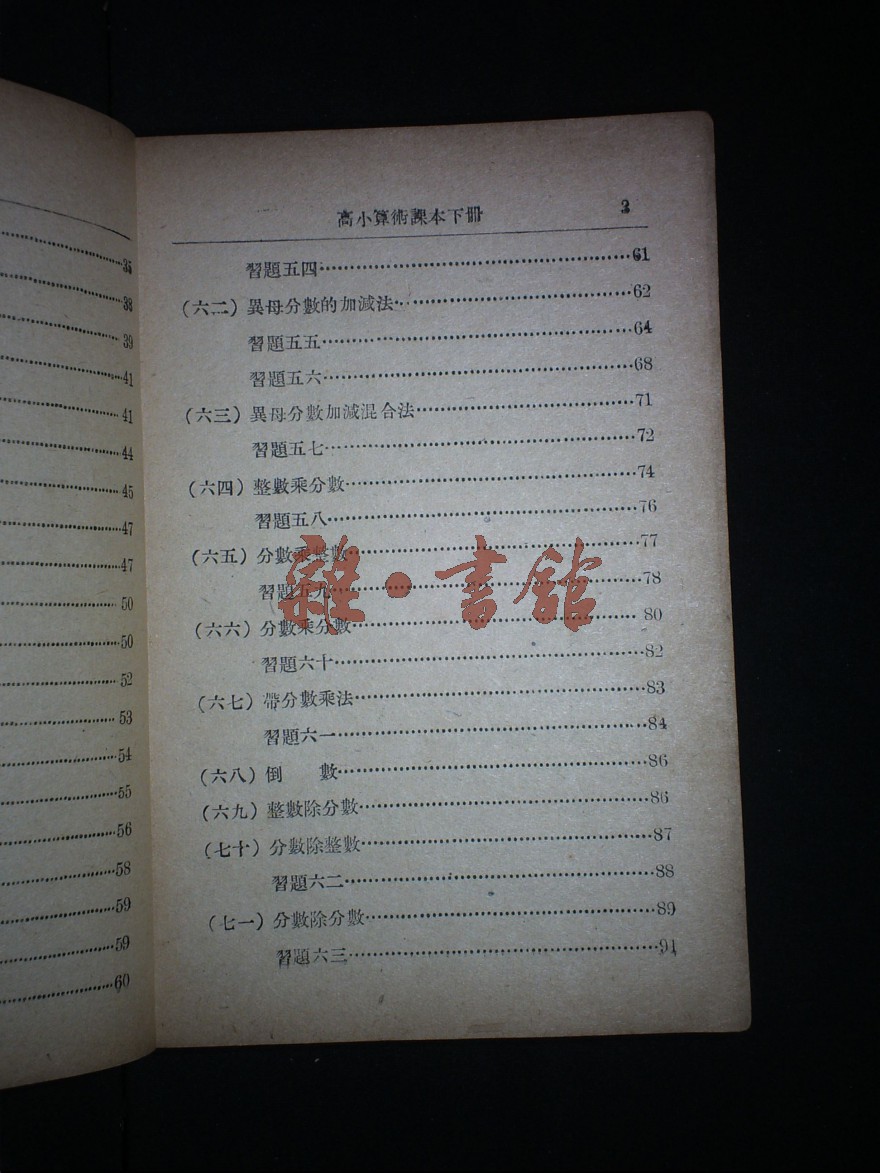 35
38
39
41
41
44
45
47
47
50
50
52
53
54
55
56
58
59
59
60
高小算術課本下冊 3
習題五四……61
(六二)異母分數的加減法……62
習題五五……64
習題五六……68
(六三)異母分數加減混合法……71
習題五七……72
(六四)整數乘分數……74
習題五八……76
(六五)分數乘整數……77
習題五九……78
(六六)分數乘分數……80
習題六十……82
(六七)帶分數乘法……83
習題六一……84
(六八)倒 數……86
(六九)整數除分數……86
(七十)分數除整數……87
習題六二……88
(七一)分數除分數……89
習題六三……91
雜·書館